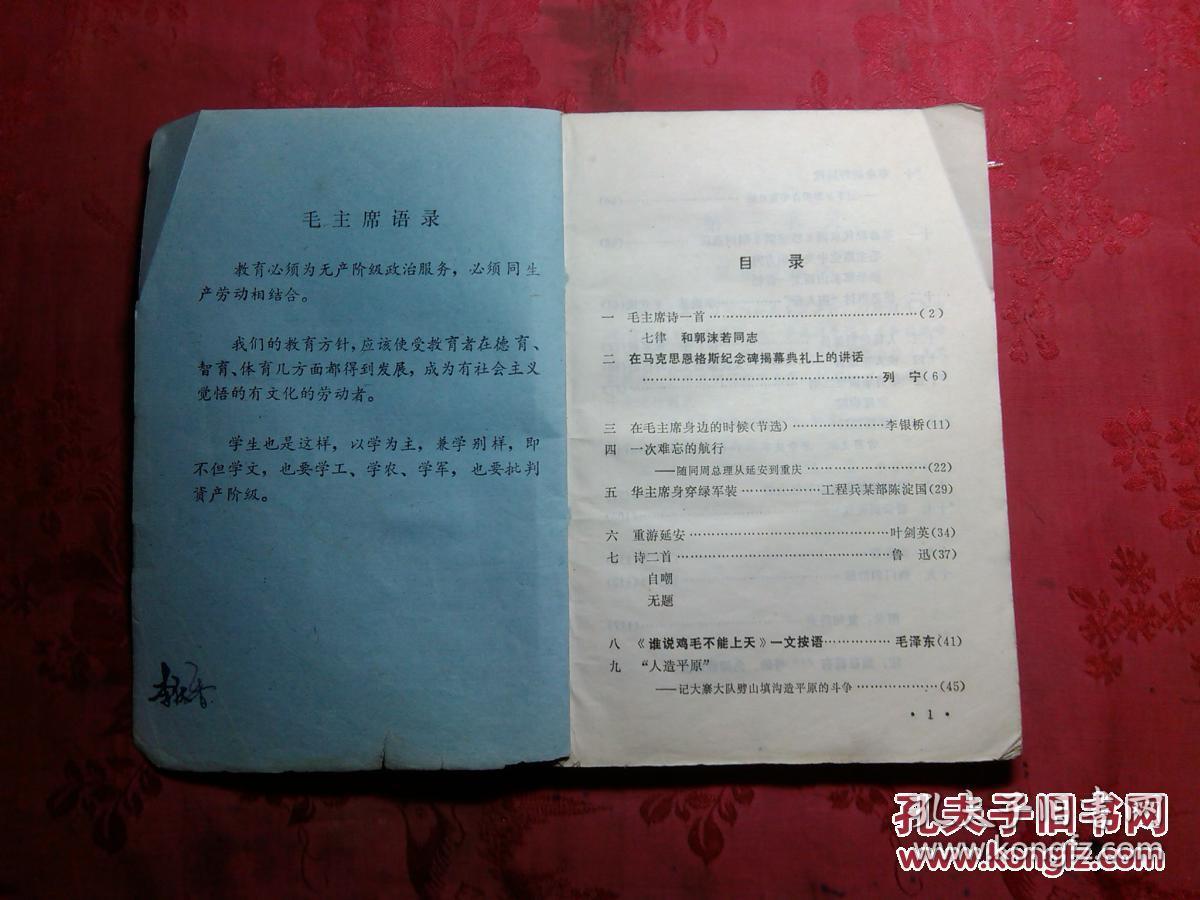 毛主席语录
教育必须为无产阶级政治服务，必须同生
产劳动相结合。
我们的教育方针，应该使受教育者在德育、
智育、体育几方面都得到发展，成为有社会主义
觉悟的有文化的劳动者。
学生也是这样，以学为主，兼学别样，即
不但学文，也要学工、学农、学军，也要批判
资产阶级。
目 录
一 毛主席诗一首……………………………(2)
七律 和郭沫若同志
二 在马克思恩格斯纪念碑揭幕典礼上的讲话
……………………………………列 宁(6)
三 在毛主席身边的时候(节选)………………李银桥(11)
四 一次难忘的航行
——随同周总理从延安到重庆…………………(22)
五 华主席身穿绿军装……………工程兵某部陈淀国(29)
六 重游延安……………………………叶剑英(34)
七 诗二首………………………………鲁 迅(37)
自嘲
无题
八 《谁说鸡毛不能上天》一文按语……………毛泽东(41)
九 “人造平原”
——记大寨大队劈山填沟造平原的斗争………………(45)
· 1 ·
孔夫子旧书网
www.kongfz.com